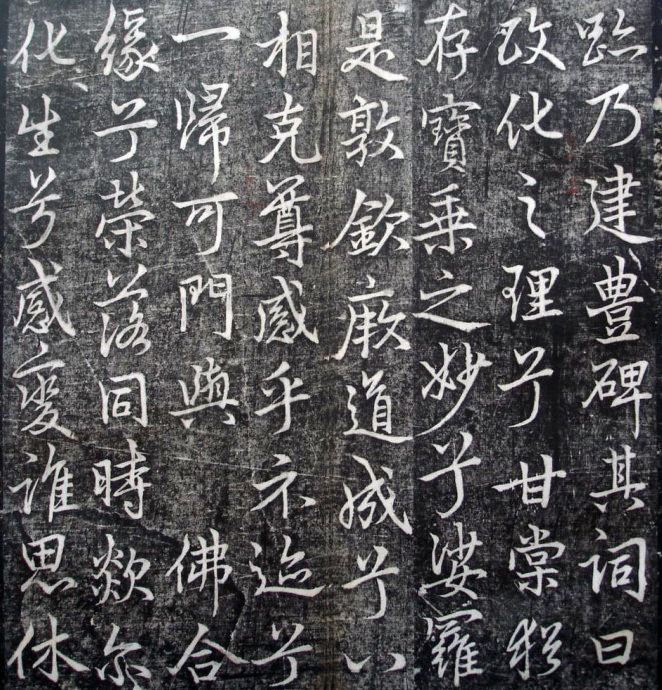 跡乃建豊碑其詞曰
政化之理兮甘棠猶
存寶乗之妙兮娑羅
是敦欽厥道成兮八
相克尊感乎示跡兮
一歸可門與 佛合
緣兮榮落同時欻尒
化生兮感變誰思休